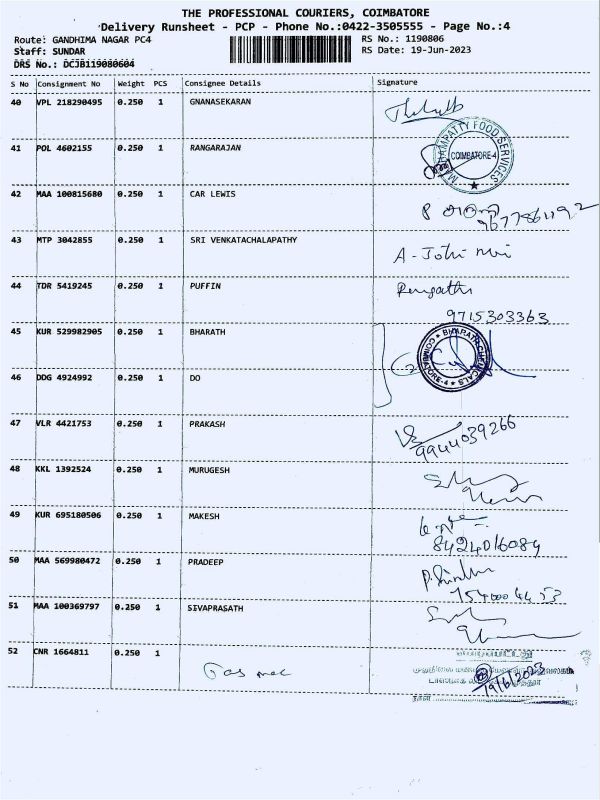 THE PROFESSIONAL COURIERS, COIMBATORE
Delivery Runsheet - PCP - Phone No.:0422-3505555 - Page No.:4
Route: GANDHIMA NAGAR PC4
Staff: SUNDAR
DRS No.: DCJB119080604
RS No.: 1190806
RS Date: 19-Jun-2023
S No Consignment No Weight PCS Consignee Details Signature
40 VPL 218290495 0.250 1 GNANASEKARAN
41 POL 4602155 0.250 1 RANGARAJAN
COIMBATORE-4
42 MAA 100815680 0.250 1 CAR LEWIS
9677861192
43 MTP 3042855 0.250 1 SRI VENKATACHALAPATHY
44 TDR 5419245 0.250 1 PUFFIN
9715303363
45 KUR 529982905 0.250 1 BHARATH
46 DDG 4924992 0.250 1 DO
47 VLR 4421753 0.250 1 PRAKASH
9944039266
48 KKL 1392524 0.250 1 MURUGESH
49 KUR 695180506 0.250 1 MAKESH
8424016084
50 MAA 569980472 0.250 1 PRADEEP
51 MAA 100369797 0.250 1 SIVAPRASATH
52 CNR 1664811 0.250 1
19/6/2023
நாள்